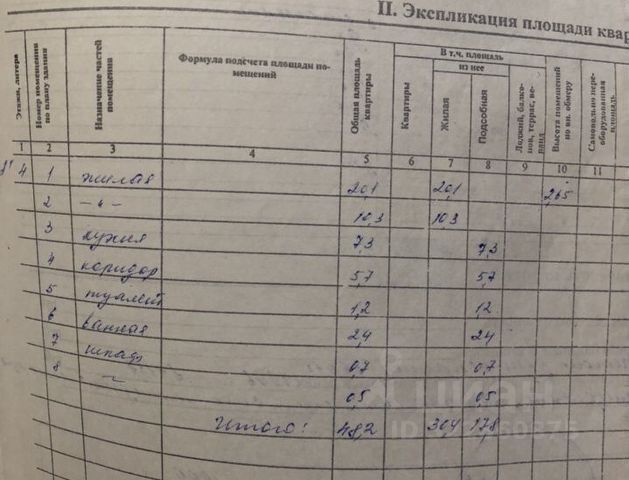 II. Экспликация площади квар
Этажи, литера
Номер помещения по плану здания
Назначение частей помещения
Формула подсчета площади по-
мещений
Общая площадь квартиры
В т.ч. площадь
из нее
Квартиры
Жилая
Подсобная
Лоджий, балко-
нов, террас, ве-
ранд
Высота помещений по вн. обмеру
Самовольно пере-
оборудованная площадь
1 2 3 4 5 6 7 8 9 10 11
4 1 жилая 20,1 20,1 2,65
2 -"- 10,3 10,3
3 кухня 7,3 7,3
4 коридор 5,7 5,7
5 туалет 1,2 1,2
6 ванная 2,4 2,4
7 шкаф 0,7 0,7
8 0,5 0,5
Итого: 48,2 30,4 17,8
ЦИАН